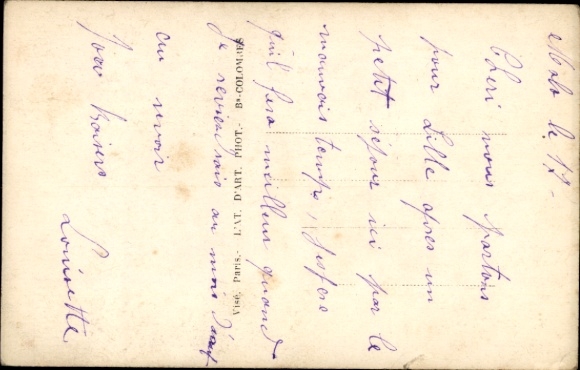 Malo le 17 -
Chéri nous partons
pour Lille apres un
petit séjour ici par le
mauvais temps, j'espère
qu'il fera meilleur quand
Je reviendrais au mois d'août
au revoir
1000 Baisers
Louisette
Visé, Paris. - L'AT. D'ART. PHOT. - Bs-COLOMBES